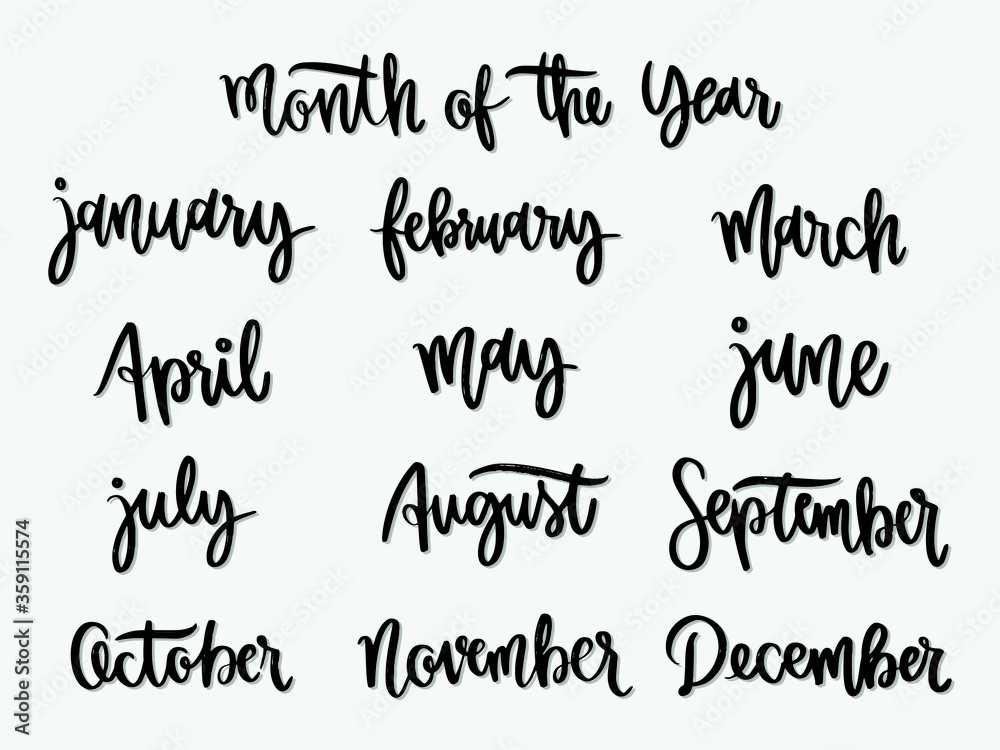 Month of the Year
january february march
April may june
july August September
October November December
Adobe Stock | #359115574